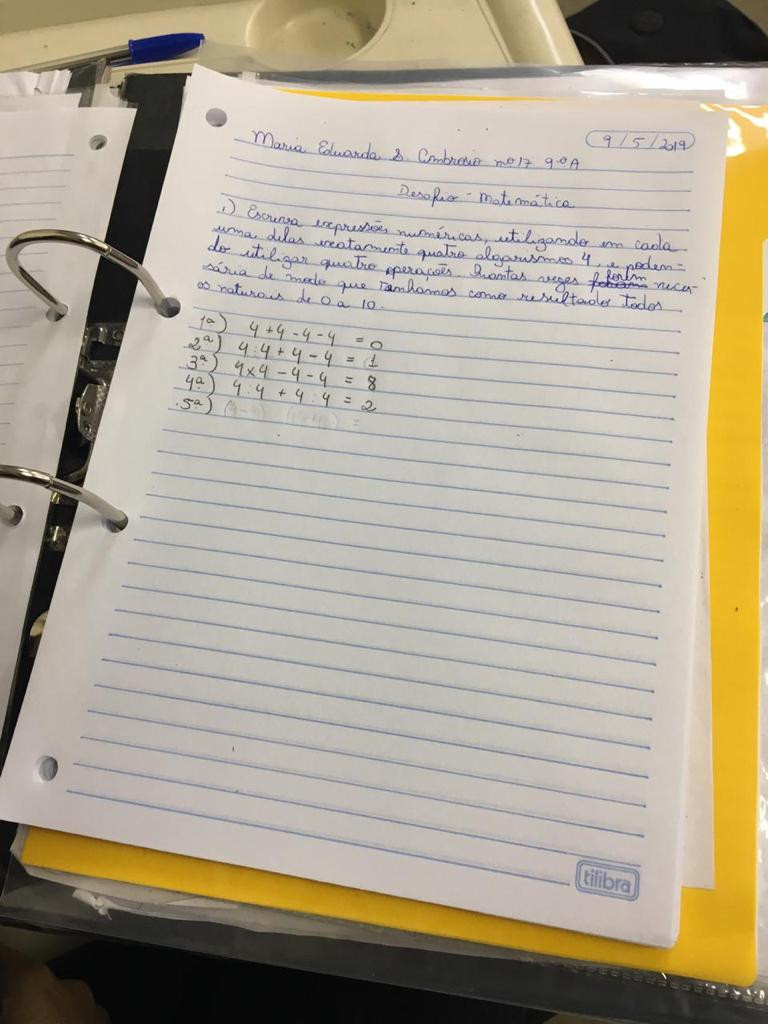 9/5/2019
Maria Eduarda S. Ambrosio nº17 9ºA
Desafio - Matemática
1) Escreva expressões numéricas, utilizando em cada
uma delas exatamente quatro algarismos 4, e poden-
do utilizar quatro operações. Quantas vezes forem neces-
sária de modo que tenhamos como resultado todos
os naturais de 0 a 10.
1ª) 4+4-4-4 = 0
2ª) 4:4+4-4 = 1
3ª) 4x4-4-4 = 8
4ª) 4:4 + 4:4 = 2
5ª)
tilibra